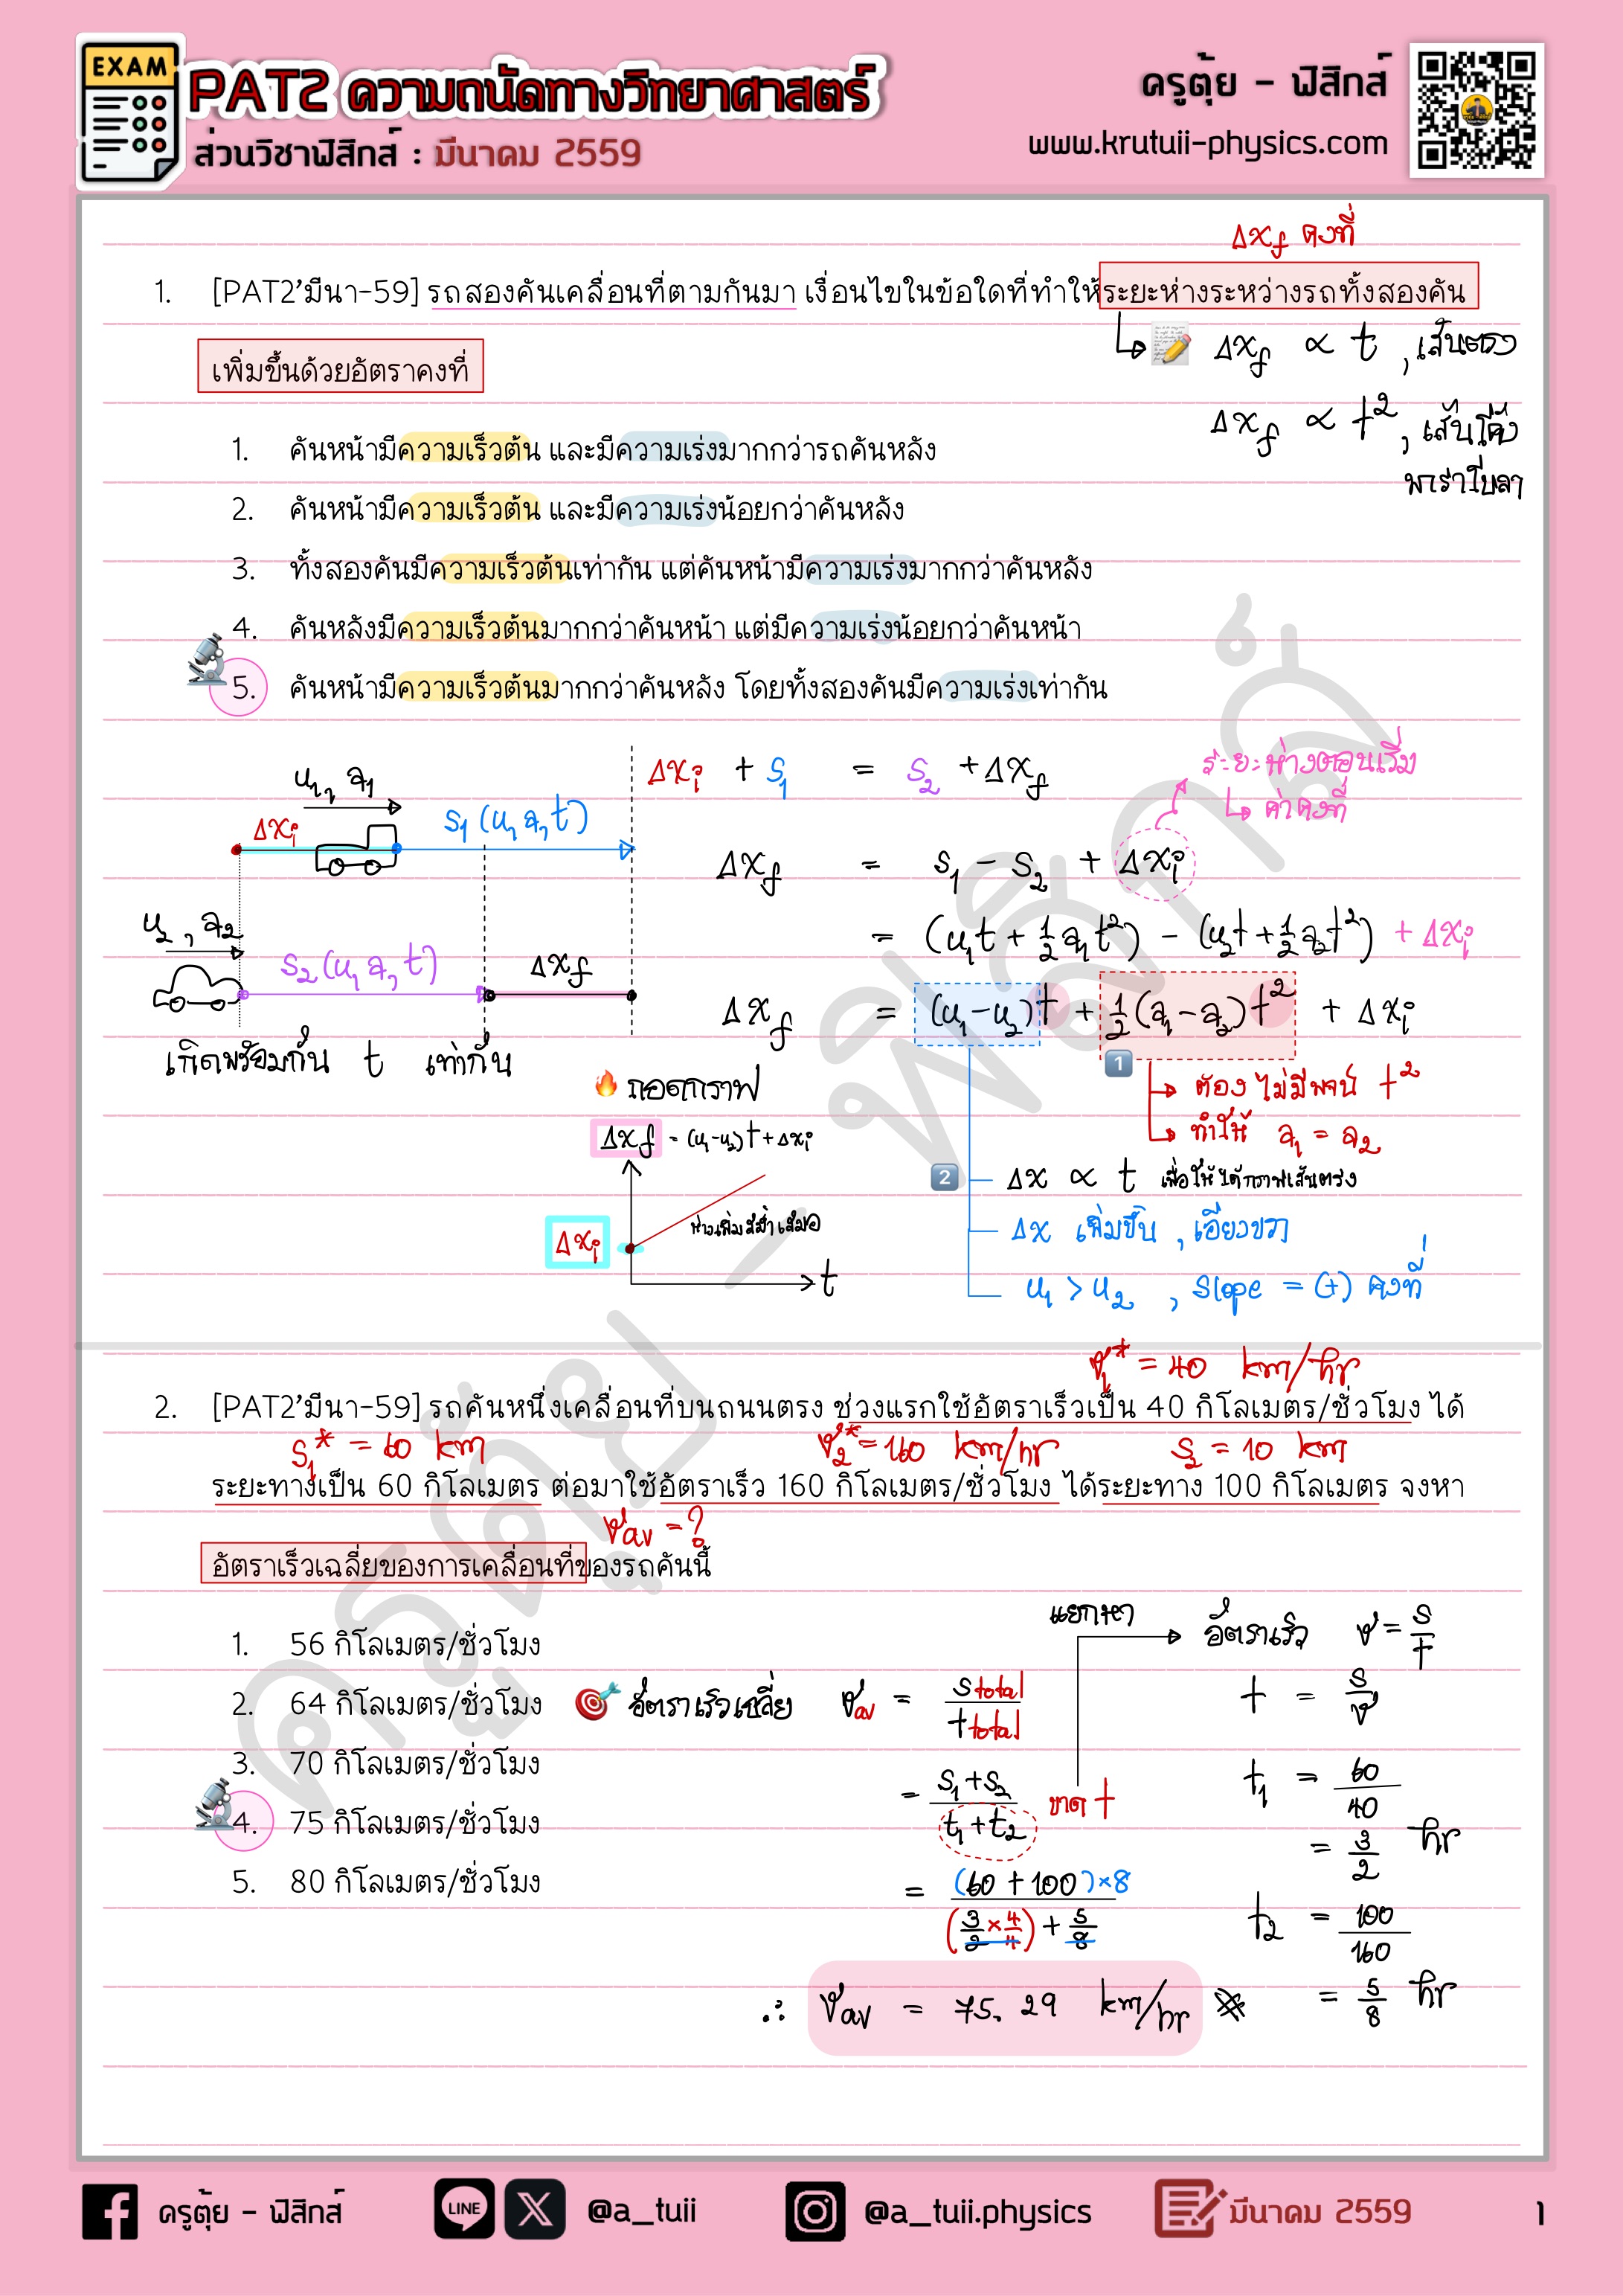 EXAM
PAT2 ความถนัดทางวิทยาศาสตร์
ส่วนวิชาฟิสิกส์ : มีนาคม 2559
ครูตุ้ย - ฟิสิกส์
www.krutuii-physics.com
Δx_f คงที่
1. [PAT2'มีนา-59] รถสองคันเคลื่อนที่ตามกันมา เงื่อนไขในข้อใดที่ทำให้ระยะห่างระหว่างรถทั้งสองคัน
Δx_f ∝ t , เส้นตรง
เพิ่มขึ้นด้วยอัตราคงที่
Δx_f ∝ t² , เส้นโค้ง
พาราโบลา
1. คันหน้ามีความเร็วต้น และมีความเร่งมากกว่ารถคันหลัง
2. คันหน้ามีความเร็วต้น และมีความเร่งน้อยกว่าคันหลัง
3. ทั้งสองคันมีความเร็วต้นเท่ากัน แต่คันหน้ามีความเร่งมากกว่าคันหลัง
4. คันหลังมีความเร็วต้นมากกว่าคันหน้า แต่มีความเร่งน้อยกว่าคันหน้า
5. คันหน้ามีความเร็วต้นมากกว่าคันหลัง โดยทั้งสองคันมีความเร่งเท่ากัน
u₁, a₁
Δx_i
s₁ (u, a, t)
u₂, a₂
s₂ (u, a, t)
Δx_f
เกิดพร้อมกัน t เท่ากัน
Δx_i + s₁ = s₂ + Δx_f
ระยะห่างตอนเริ่ม
↳ ค่าคงที่
Δx_f = s₁ - s₂ + Δx_i
= (u₁t + ½a₁t²) - (u₂t + ½a₂t²) + Δx_i
Δx_f = (u₁-u₂)t + ½(a₁-a₂)t² + Δx_i
1
ต้อง ไม่มีพจน์ t²
ทำให้ a₁ = a₂
2
Δx ∝ t เพื่อให้ได้กราฟเส้นตรง
Δx เพิ่มขึ้น , เอียงขวา
u₁ > u₂ , slope = (+) คงที่
ถอดกราฟ
Δx_f = (u₁-u₂)t + Δx_i
Δx_i
ห่างเพิ่มสม่ำเสมอ
t
v₁* = 40 km/hr
2. [PAT2'มีนา-59] รถคันหนึ่งเคลื่อนที่บนถนนตรง ช่วงแรกใช้อัตราเร็วเป็น 40 กิโลเมตร/ชั่วโมง ได้
s₁* = 60 km
v₂* = 160 km/hr
s₂ = 10 km
ระยะทางเป็น 60 กิโลเมตร ต่อมาใช้อัตราเร็ว 160 กิโลเมตร/ชั่วโมง ได้ระยะทาง 100 กิโลเมตร จงหา
v_av = ?
อัตราเร็วเฉลี่ยของการเคลื่อนที่ของรถคันนี้
1. 56 กิโลเมตร/ชั่วโมง
2. 64 กิโลเมตร/ชั่วโมง
3. 70 กิโลเมตร/ชั่วโมง
4. 75 กิโลเมตร/ชั่วโมง
5. 80 กิโลเมตร/ชั่วโมง
อัตราเร็วเฉลี่ย v_av = s total / t total
= (s₁ + s₂) / (t₁ + t₂)
ขาด t
= (60 + 100) × 8 / (3/2 × 4/4) + 5/8
∴ v_av = 75.29 km/hr
แยกหา
อัตราเร็ว v = s/t
t = s/v
t₁ = 60/40
= 3/2 hr
t₂ = 100/160
= 5/8 hr
ครูตุ้ย - ฟิสิกส์
ครูตุ้ย - ฟิสิกส์
LINE
@a_tuii
@a_tuii.physics
มีนาคม 2559
1